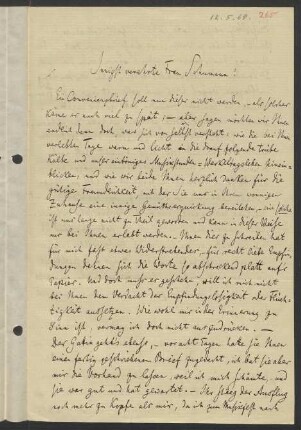 12. 5. 60. 265
Innigst verehrte Frau Schumann!
Ein Convenienzbrief soll nun dieser nicht werden, als solcher
käme er auch viel zu spät an aber sagen möchten wir Ihnen
endlich denn doch, was sich von selbst versteht: wie die bei Ihnen
verlebten Tage warm und licht in die darauf folgende trübe
Kälte und unser eintöniges Musikanten-Werkeltagsleben hinein
blicken, und wie wir beide Ihnen herzlich danken für die
gütige Freundlichkeit mit der Sie uns in Ihrem sonnigen
Zuhause eine innige Gemüthserquickung bereiteten, ein solche
ist uns lange nicht zu Theil geworden und kann in dieser Weise
nur bei Ihnen erlebt werden. Ihnen dies zu schreiben hat
für mich fast etwas Widerstrebendes, für recht tiefe Empfin-
dungen dehnen sich die Worte so abschreckend platt aufs
Papier. Und doch muß es geschehen, will ich mich nicht
bei Ihnen dem Verdacht der Empfindungslosigkeit oder Flüch-
tigkeit aussetzen. Wie wohl mir in der Erinnerung zu
Sinn ist, vermag ich doch nicht auszudrücken. —
Der Gabin gehts ebenso, — vor acht Tagen hatte sie Ihnen
einen fertig geschriebenen Brief zugedacht, ich bat sie aber
mir die Vorhand zu lassen, weil ich mich schämte, und
sie war gut und hat gewartet. — Ihr stieg der Ausflug
noch mehr zu Kopfe als mir, da ich zum Musikfest nach